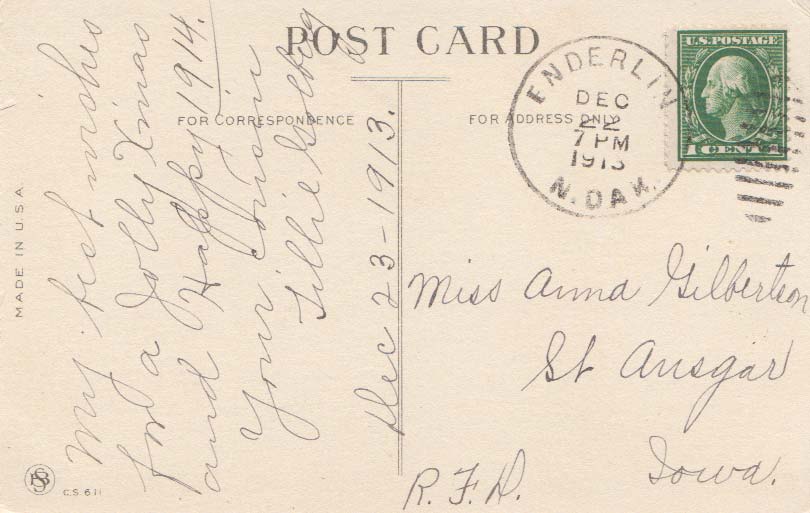 POST CARD
FOR CORRESPONDENCE
FOR ADDRESS ONLY
MADE IN U.S.A
My best wishes
for a Jolly Xmas
and Happy 1914.
Your Cousin
Tillie
Dec 23-1913.
ENDERLIN
DEC
22
7 PM
1913
N. DAK.
U.S. POSTAGE
1 CENT 1
Miss Anna Gilbertson
St Ansgar
Iowa.
R.F.D.
C.S. 611